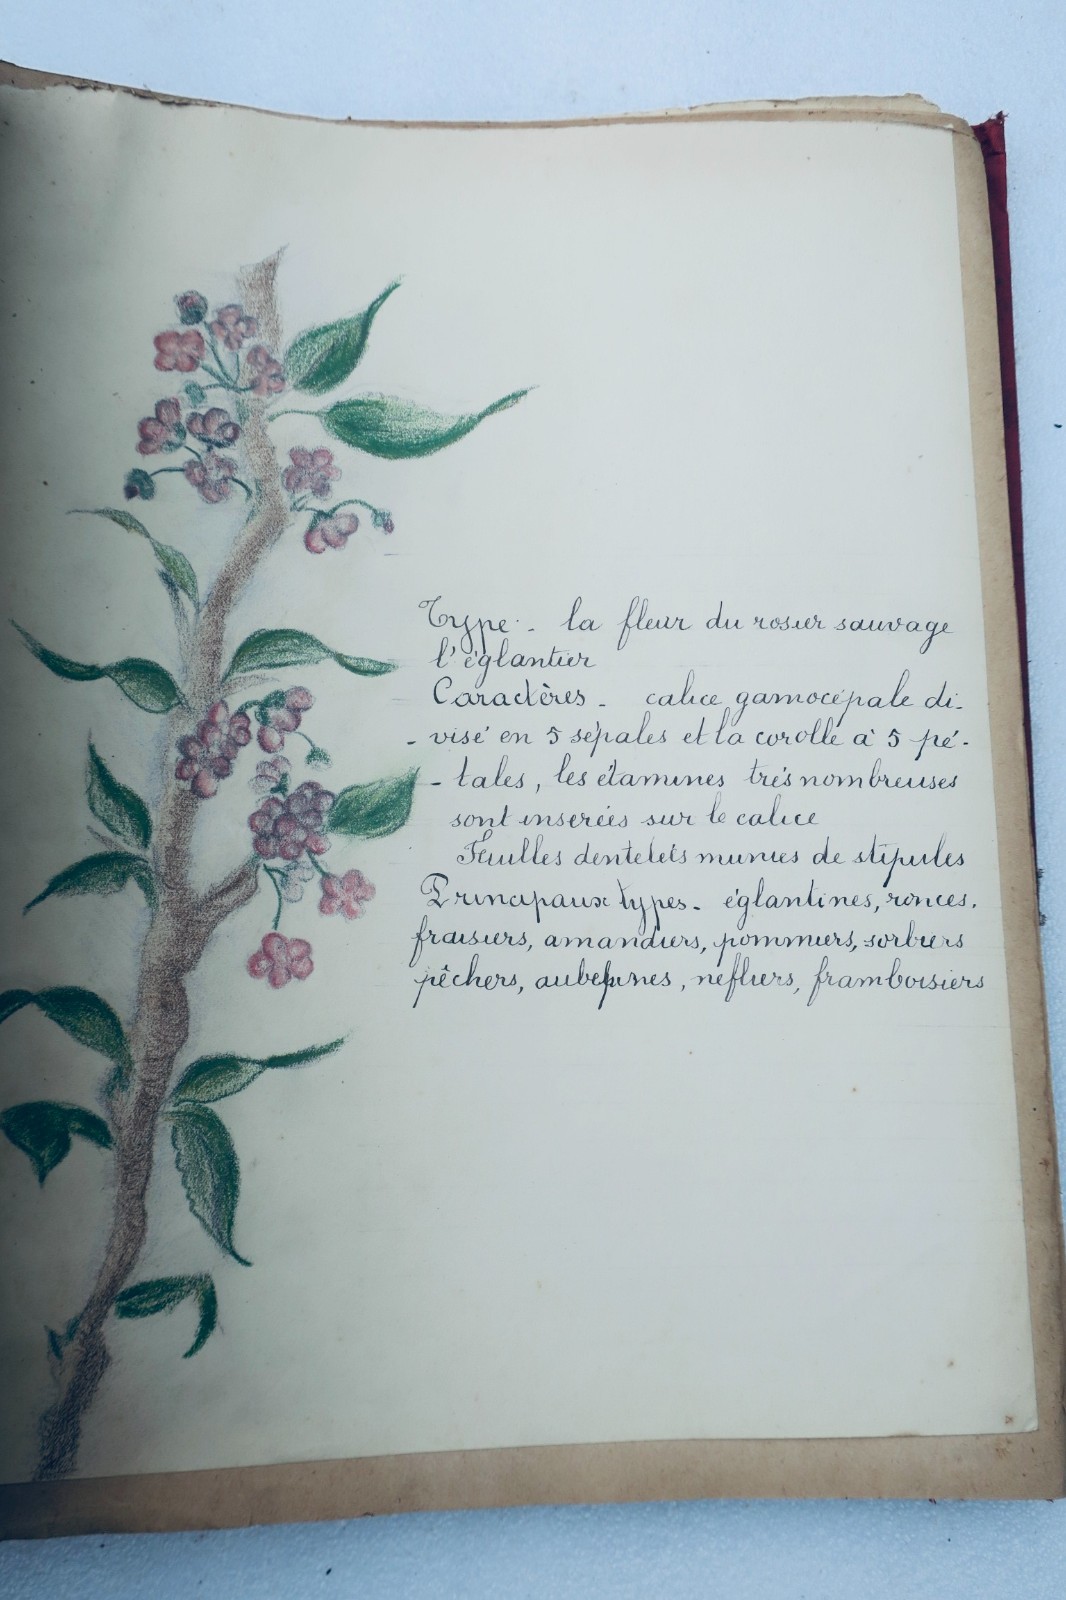 Type. - la fleur du rosier sauvage
l'églantier
Caractères - calice gamocépale di-
- visé en 5 sépales et la corolle à 5 pé-
- tales, les étamines très nombreuses
sont inserées sur le calice
Feuilles dentelets munies de stipules
Principaux types - églantines, ronces,
fraisiers, amandiers, pommiers, sorbiers
pêchers, aubepines, nefliers, framboisiers